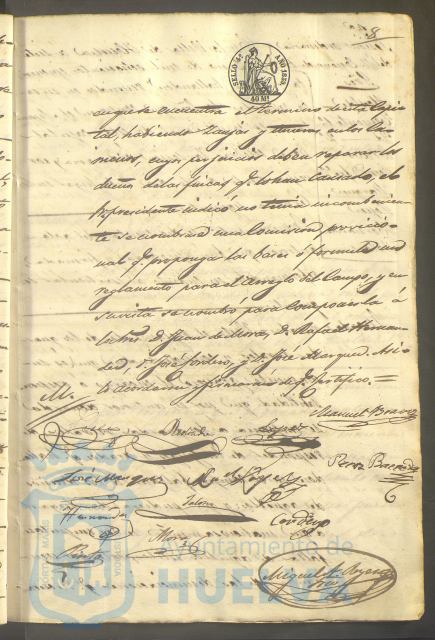 8
SELLO 4º AÑO 1858
40 Mˢ
en que se encuentra el termino de esta Capi-
tal, habiendo zanjas y tuneras en los ca-
minos, cuyos perjuicios deben reparar los
dueños de las fincas q. lo han causado, el
Presidente indicó no tenia inconvenien-
te se nombrara una Comision provicio-
nal q. proponga las bases ó formule un
reglamento para el arreglo del Campo, y en
su vista se nombró para componerla á
D. Juan de Mora, D. Rafael Hernan-
dez, D. José Cordero, y D. José Marquez. Asi
lo acordaron y firmaron de q. certifico. =
M.
Manuel Bravo
Lopez
Perez Barreda
José Marquez
R. Lopez
Hernandez
Mora
Cordero
Miguel
Ayuntamiento de
HUELVA